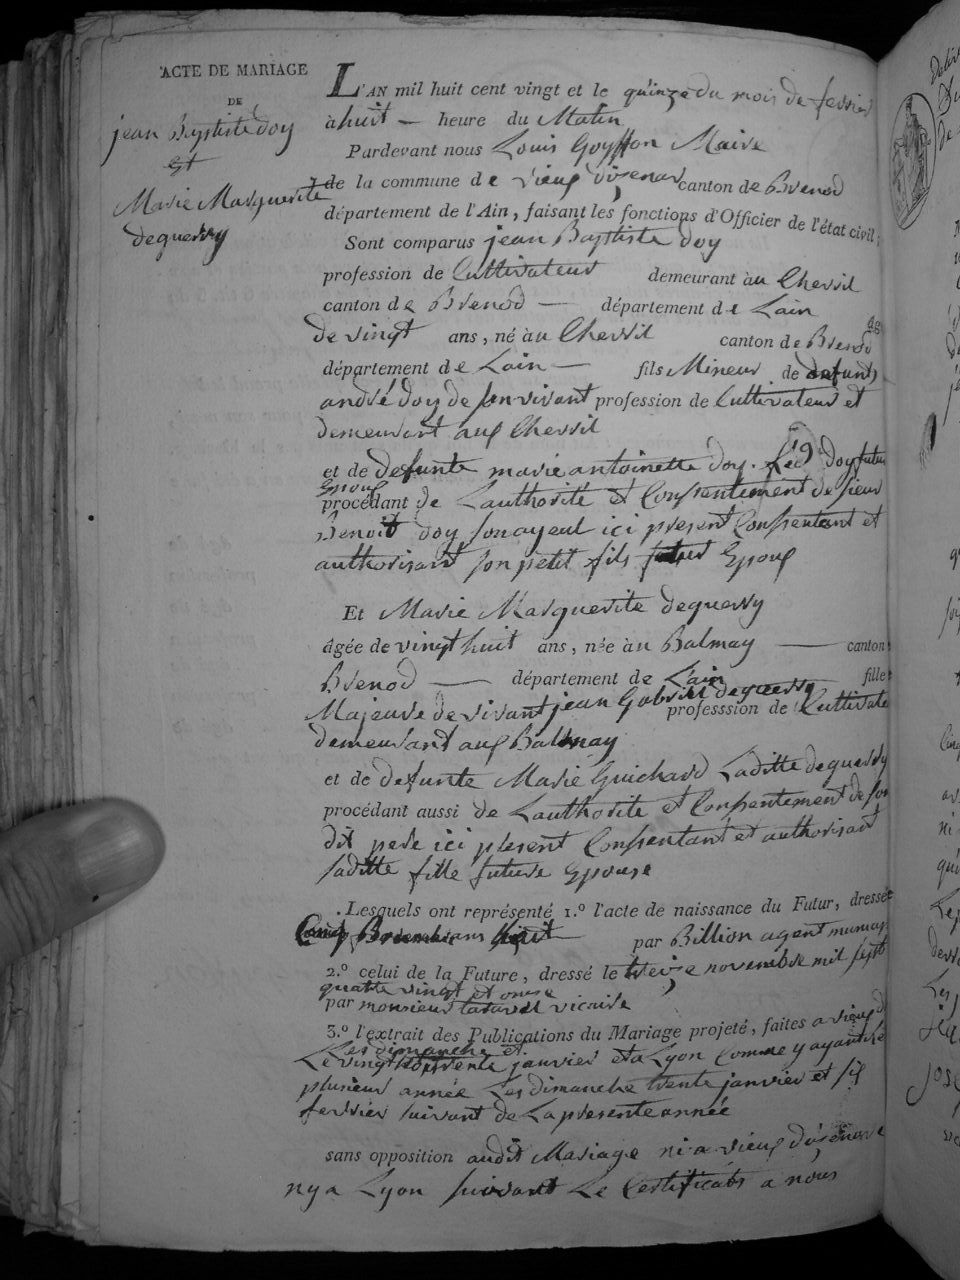 ACTE DE MARIAGE
DE
jean Baptiste Doy
Et
Marie Marguerite
deguerry
L'AN mil huit cent vingt et le quinze du mois de fevrier
à huit — heure du Matin
Pardevant nous Louis Goyffon Maire
de la commune de vieux d'izenave canton de Brenod
département de l'Ain, faisant les fonctions d'Officier de l'état civil;
Sont comparus jean Baptiste Doy
profession de Cultivateur demeurant àu Chevril
canton de Brenod — département de Lain
de vingt ans, né àu Chevril canton de Brenod
département de Lain — fils Mineur de defunts
andré Doy de son vivant profession de Cultivateur et
demeurant aux Chevril
et de defunte marie antoinette Doy. Doy futur
Epoux
procédant de Lauthorité et Consentement de sieur
Benoit Doy son ayeul ici present Consentant et
authorisant son petit fils futur Epoux
Et Marie Marguerite deguerry
âgée de vingt huit ans, née àu Balmay — canton
Brenod — département de Lain fille
Majeure de vivant jean Gabriel deguerry professsion de Cultivate
demeurant aux Balmay
et de defunte Marie Guichard Laditte deguerry
procédant aussi de Lauthorité et Consentement de son
dit pere ici present Consentant et authorisant
saditte fille future Epouse
Lesquels ont représenté 1.º l'acte de naissance du Futur, dressée
Brumaire ans huit par Billion agent municip
2.º celui de la Future, dressé le treize novembre mil sept
quatre vingt et onze
par monsieur vicaire
3.º l'extrait des Publications du Mariage projeté, faites a vieux d
Les dimanche et
Le vingt trois trente janvier et a Lyon Comme y ayant
plusieur année Les dimanche trente janvier et six
fevrier suivant de La presente année
sans opposition audit Mariage ni a vieux d'izenave
ny a Lyon suivant Le Certificats a nous